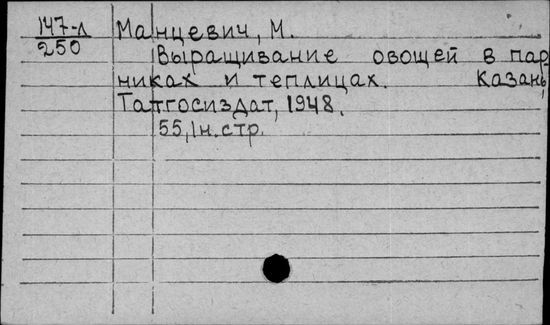 147-л
250
Манцевич, М.
Выращивание овощей в пар
никах и теплицах. Казань,
Татгосиздат, 1948.
55, 1н. стр.